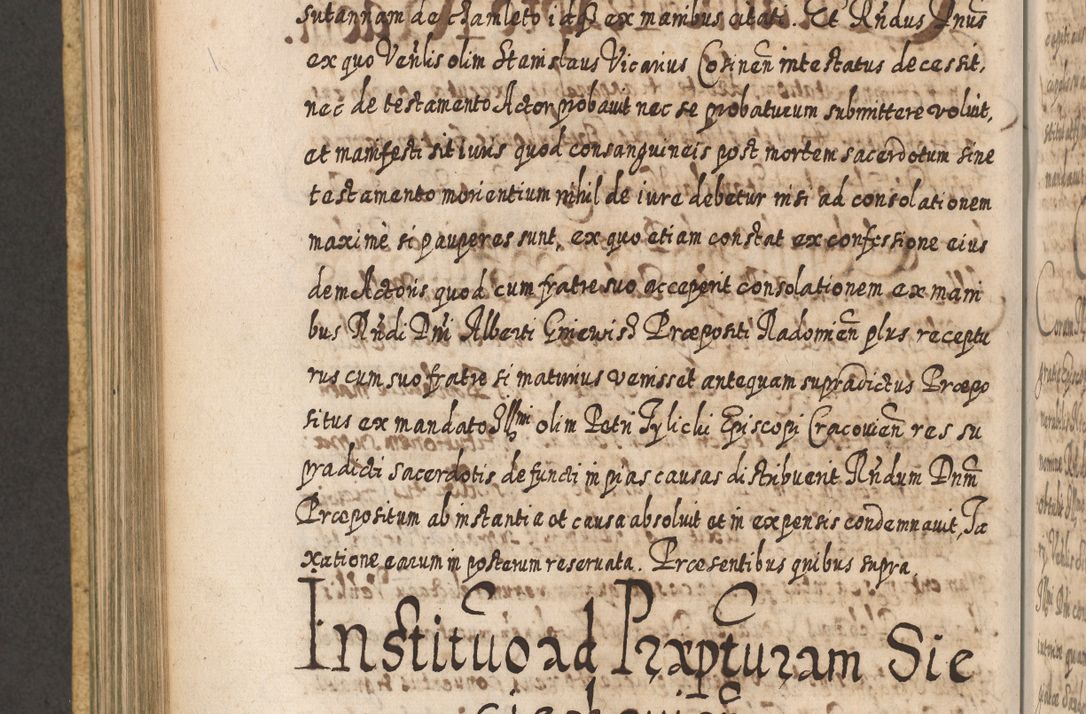 sutannam de chamleto id est ex manibus citati. Et Rndus Dnus
ex quo Venlis olim Stanislaus Vicarius Cosinen intestatus decessit,
nec de testamento Actor probavit nec se probaturum submittere voluit,
et manifesti sit iuris quod consanguineis post mortem sacerdotum sine
testamento morientium nihil de iure debetur nisi ad consolationem
maxime si pauperes sunt, ex quo etiam constat ex confessione eius
dem Actoris quod cum fratre suo acceperit consolationem ex mani
bus Rndi Dni Alberti Præpositi Radomien plus receptu
rus cum suo fratre si maturius venisset antequam supradictus Præpo
situs ex mandato Illmi olim Petri Tylicki Episcopi Cracovien res su
pradicti sacerdotis defuncti in pias causas distribuerit Rndum Dnm
Præpositum ab instantia et causa absoluit et in expensis condemnauit, Ta
xatione earum in posterum reseruata. Præsentibus quibus supra.
Instituo ad Præpturam Sie